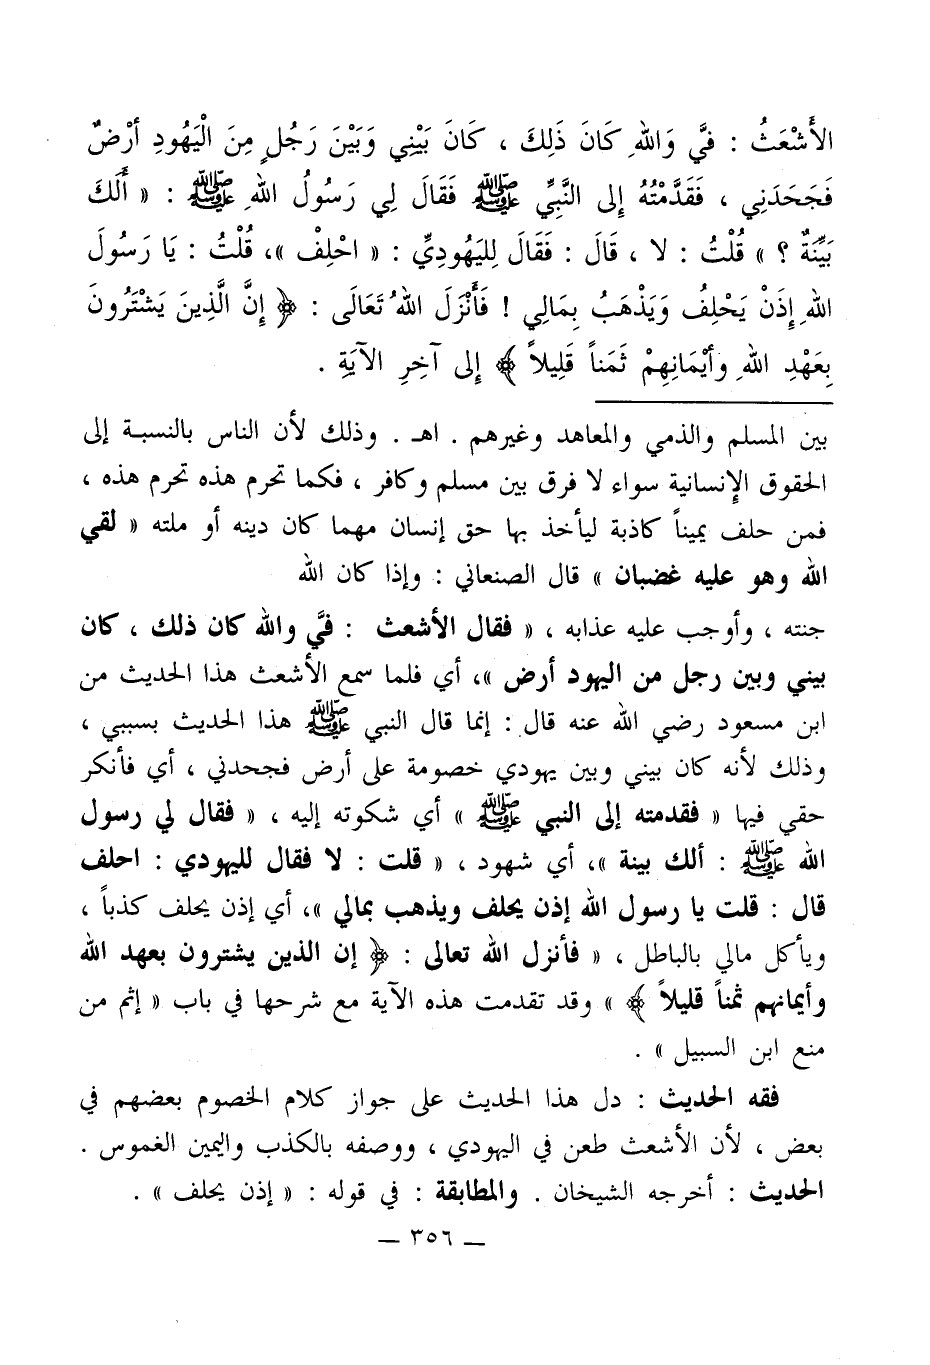 الأَشْعَثُ : فيَّ وَاللهِ كَانَ ذَلِكَ ، كَانَ بَيْنِي وَبَيْنَ رَجُلٍ مِنَ الْيَهُودِ أرْضٌ
فَجَحَدَنِي ، فَقَدَّمْتُهُ إِلى النَّبِيِّ ﷺ فَقَالَ لِي رَسُولُ اللهِ ﷺ : « أَلَكَ
بَيِّنَةٌ ؟ » قُلْتُ : لا ، قَالَ : فَقَالَ لِليَهُودِيِّ : « احْلِفْ »، قُلْتُ : يَا رَسُولَ
اللهِ إِذَنْ يَحْلِفُ وَيَذْهَبُ بِمَالِي ! فَأَنْزَلَ اللهُ تَعَالَى : ﴿ إِنَّ الَّذِينَ يَشْتَرُونَ
بِعَهْدِ اللهِ وأيْمَانِهِمْ ثَمَناً قَلِيلاً ﴾ إِلى آخِرِ الآيَةِ .
بين المسلم والذمي والمعاهد وغيرهم . اهـ . وذلك لأن الناس بالنسبة إلى
الحقوق الإنسانية سواء لا فرق بين مسلم وكافر ، فكما تحرم هذه تحرم هذه ،
فمن حلف يميناً كاذبة ليأخذ بها حق إنسان مهما كان دينه أو ملته « لقي
الله وهو عليه غضبان » قال الصنعاني : وإذا كان الله
جنته ، وأوجب عليه عذابه ، « فقال الأشعث : فيَّ والله كان ذلك ، كان
بيني وبين رجل من اليهود أرض »، أي فلما سمع الأشعث هذا الحديث من
ابن مسعود رضي الله عنه قال : إنما قال النبي ﷺ هذا الحديث بسببي ،
وذلك لأنه كان بيني وبين يهودي خصومة على أرض فجحدني ، أي فأنكر
حقي فيها « فقدمته إلى النبي ﷺ » أي شكوته إليه ، « فقال لي رسول
الله ﷺ : ألك بينة »، أي شهود ، « قلت : لا فقال لليهودي : احلف
قال : قلت يا رسول الله إذن يحلف ويذهب بمالي »، أي إذن يحلف كذباً ،
ويأكل مالي بالباطل ، « فأنزل الله تعالى : ﴿ إن الذين يشترون بعهد الله
وأيمانهم ثمناً قليلاً ﴾ » وقد تقدمت هذه الآية مع شرحها في باب « إثم من
منع ابن السبيل » .
فقه الحديث : دل هذا الحديث على جواز كلام الخصوم بعضهم في
بعض ، لأن الأشعث طعن في اليهودي ، ووصفه بالكذب واليمين الغموس .
الحديث : أخرجه الشيخان . والمطابقة : في قوله : « إذن يحلف » .
— ٣٥٦ —